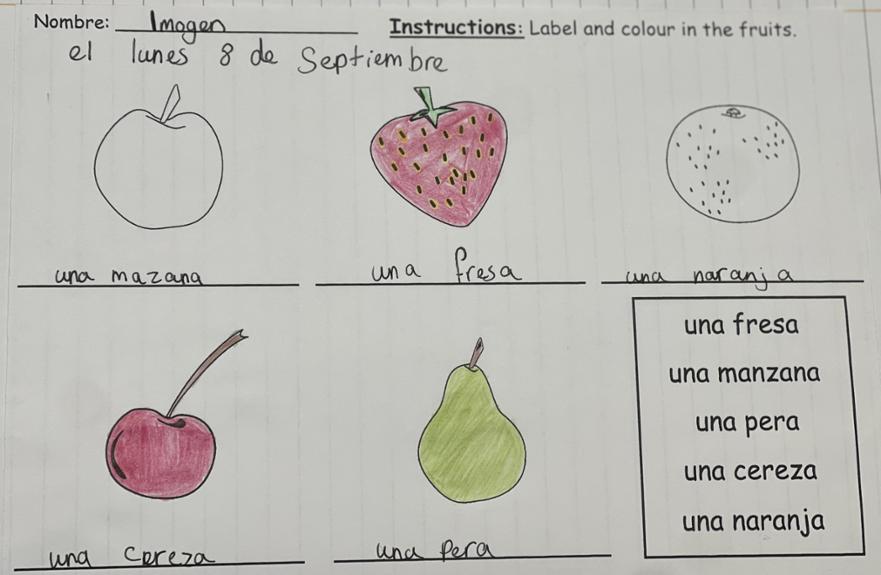 Nombre: Imogen
Instructions: Label and colour in the fruits.
el lunes 8 de Septiembre
una mazana
una fresa
una naranja
una cereza
una pera
una fresa
una manzana
una pera
una cereza
una naranja